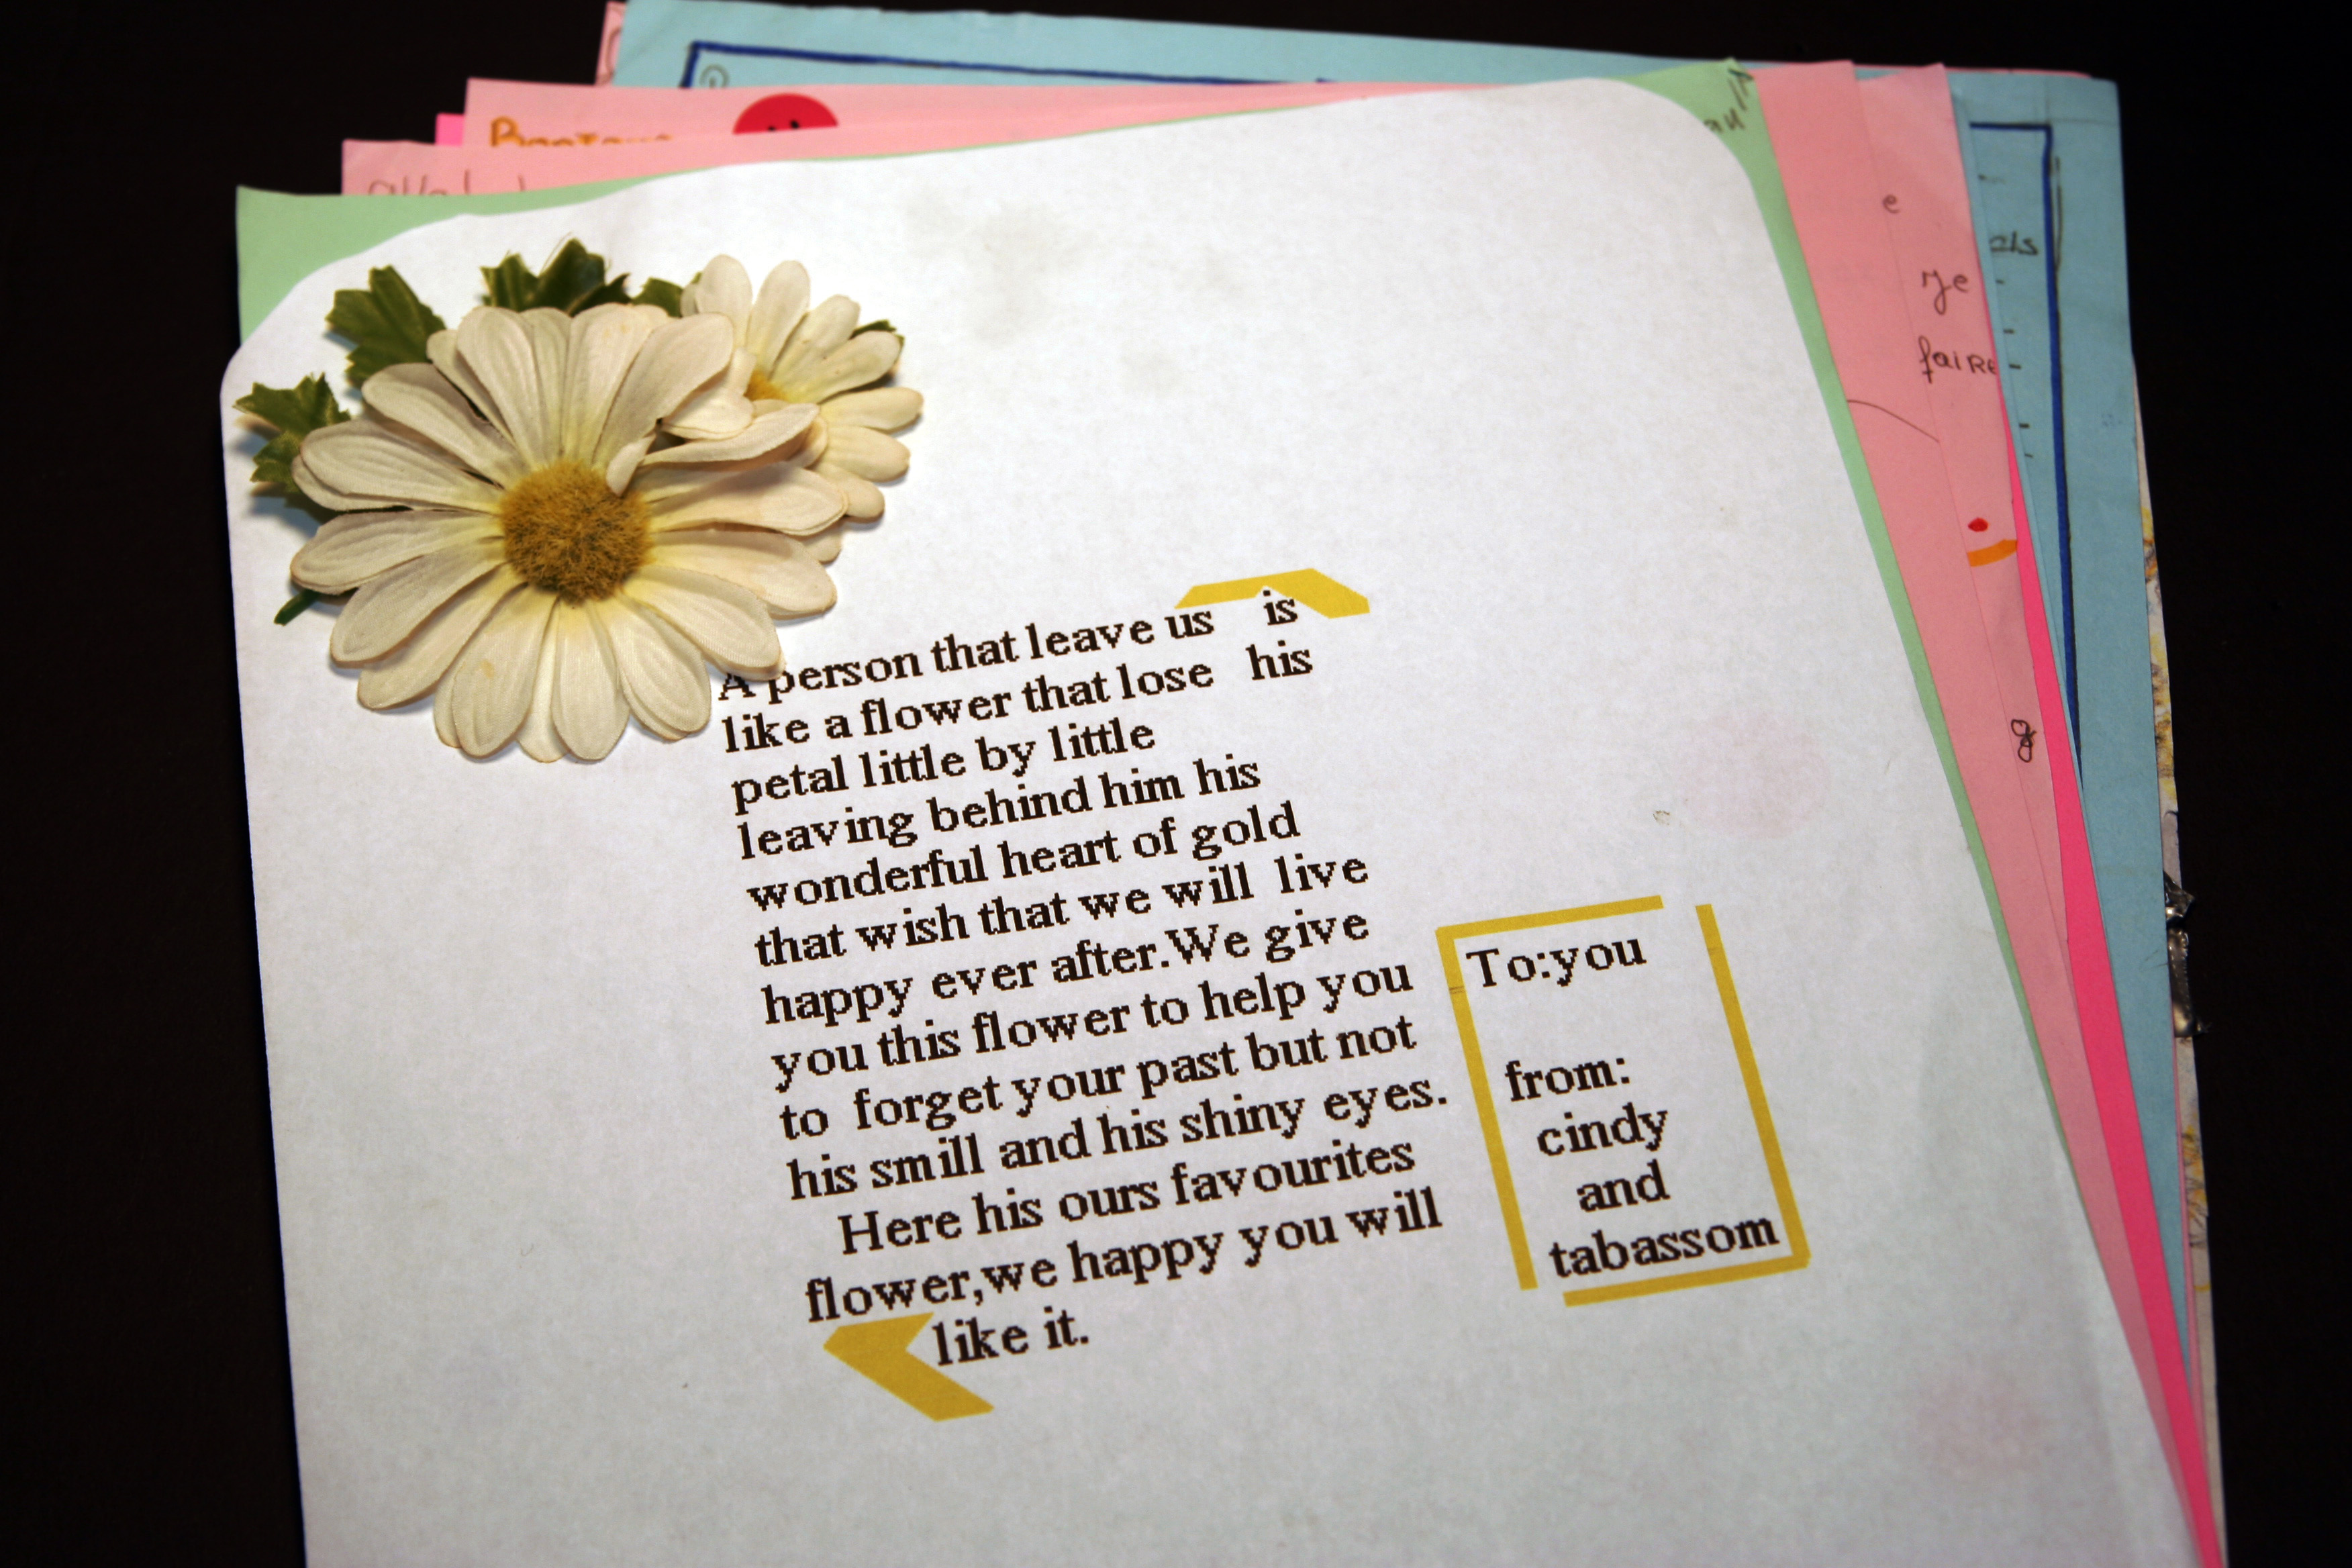 A person that leave us is
like a flower that lose his
petal little by little
leaving behind him his
wonderful heart of gold
that wish that we will live
happy ever after.We give
you this flower to help you
to forget your past but not
his smill and his shiny eyes.
Here his ours favourites
flower,we happy you will
like it.
To:you
from:
cindy
and
tabassom
e
je
faire